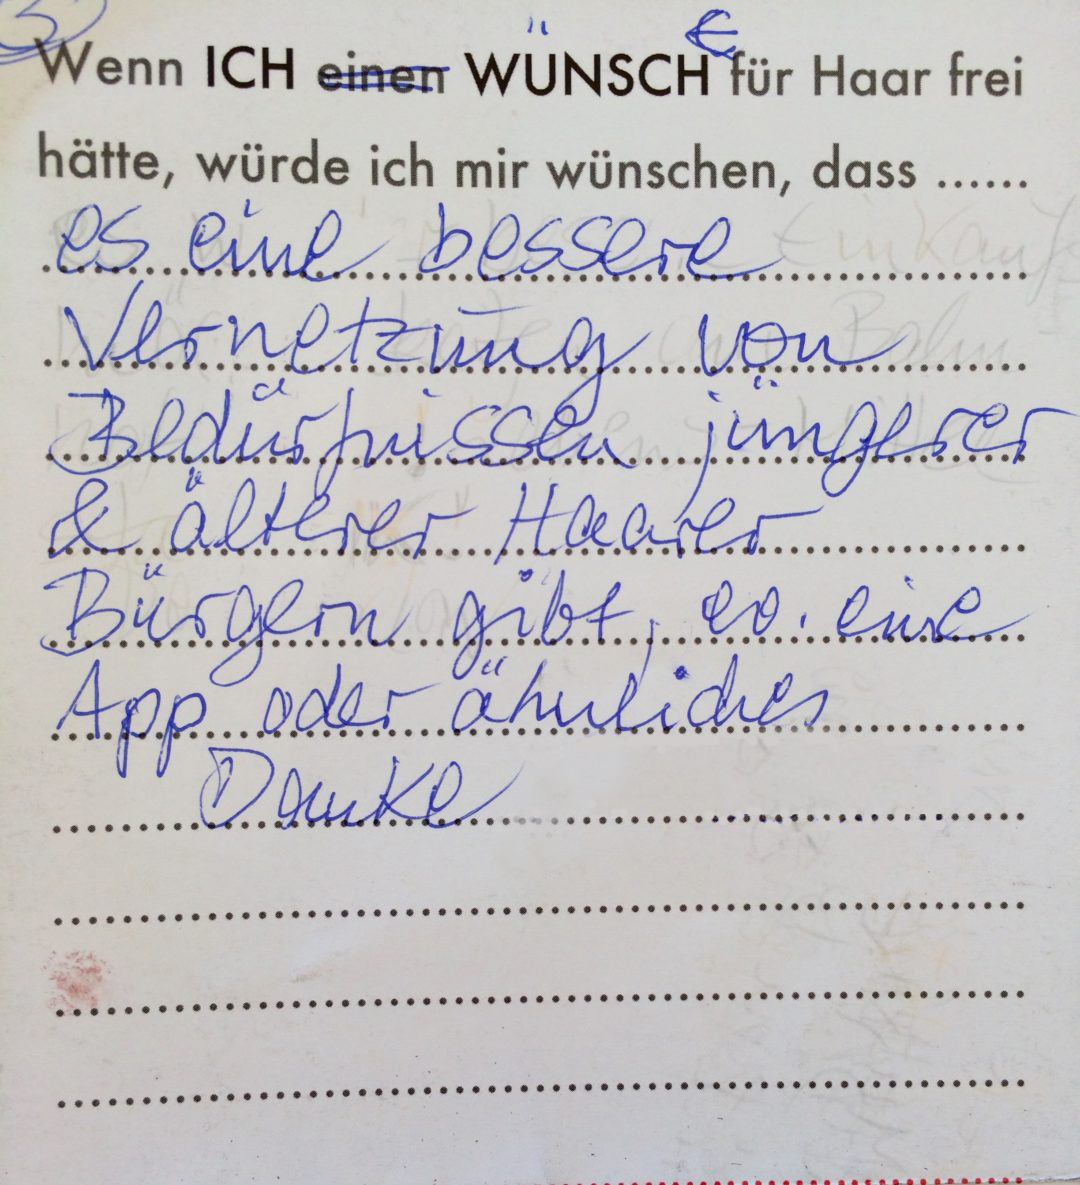 3
Wenn ICH einen WÜNSCHE für Haar frei
hätte, würde ich mir wünschen, dass ......
es eine bessere
Vernetzung von
Bedürfnissen jüngerer
& älterer Haarer
Bürgern gibt, ev. eine
App oder ähnliches
Danke